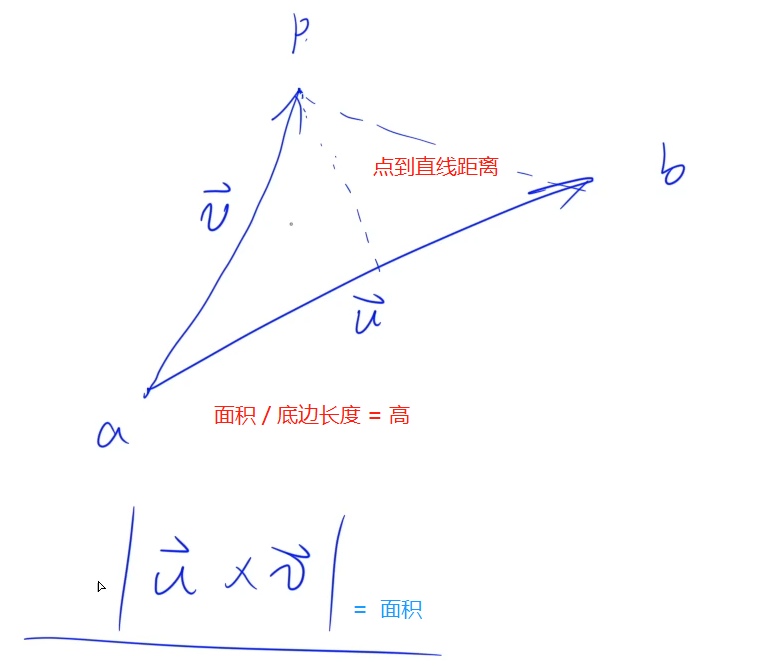 p.
点到直线距离
b
v⃗
u⃗
面积 / 底边长度 = 高
a
| u⃗ × v⃗ |
= 面积